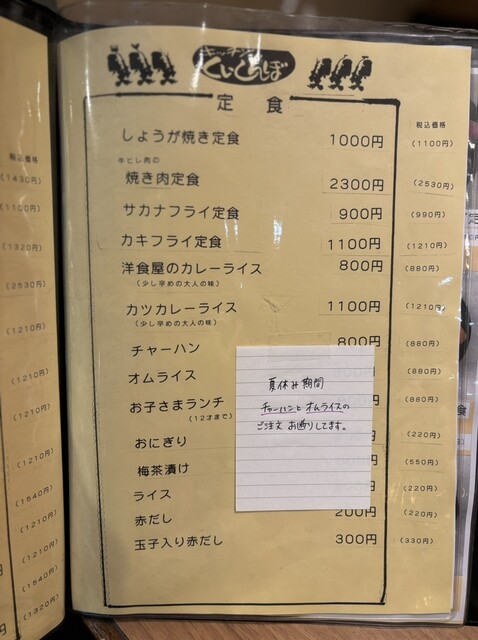 キッチン
くいしんぼ
定 食
税込価格
しょうが焼き定食 1000円 (1100円)
牛ヒレ肉の
焼き肉定食 2300円 (2530円)
サカナフライ定食 900円 (990円)
カキフライ定食 1100円 (1210円)
洋食屋のカレーライス 800円 (880円)
(少し辛めの大人の味)
カツカレーライス 1100円 (1210円)
(少し辛めの大人の味)
チャーハン 800円 (880円)
オムライス (880円)
お子さまランチ (880円)
(12才まで)
おにぎり 円 (220円)
梅茶漬け 円 (550円)
ライス 円 (220円)
赤だし 200円 (220円)
玉子入り赤だし 300円 (330円)
夏休み期間
チャーハンと オムライスの
ご注文 お断りしてます。
税込価格
(1430円)
(1100円)
(1320円)
(2530円)
(1210円)
(1210円)
(1210円)
(1210円)
(1540円)
(1210円)
(1210円)
(1540円)
(1320円)